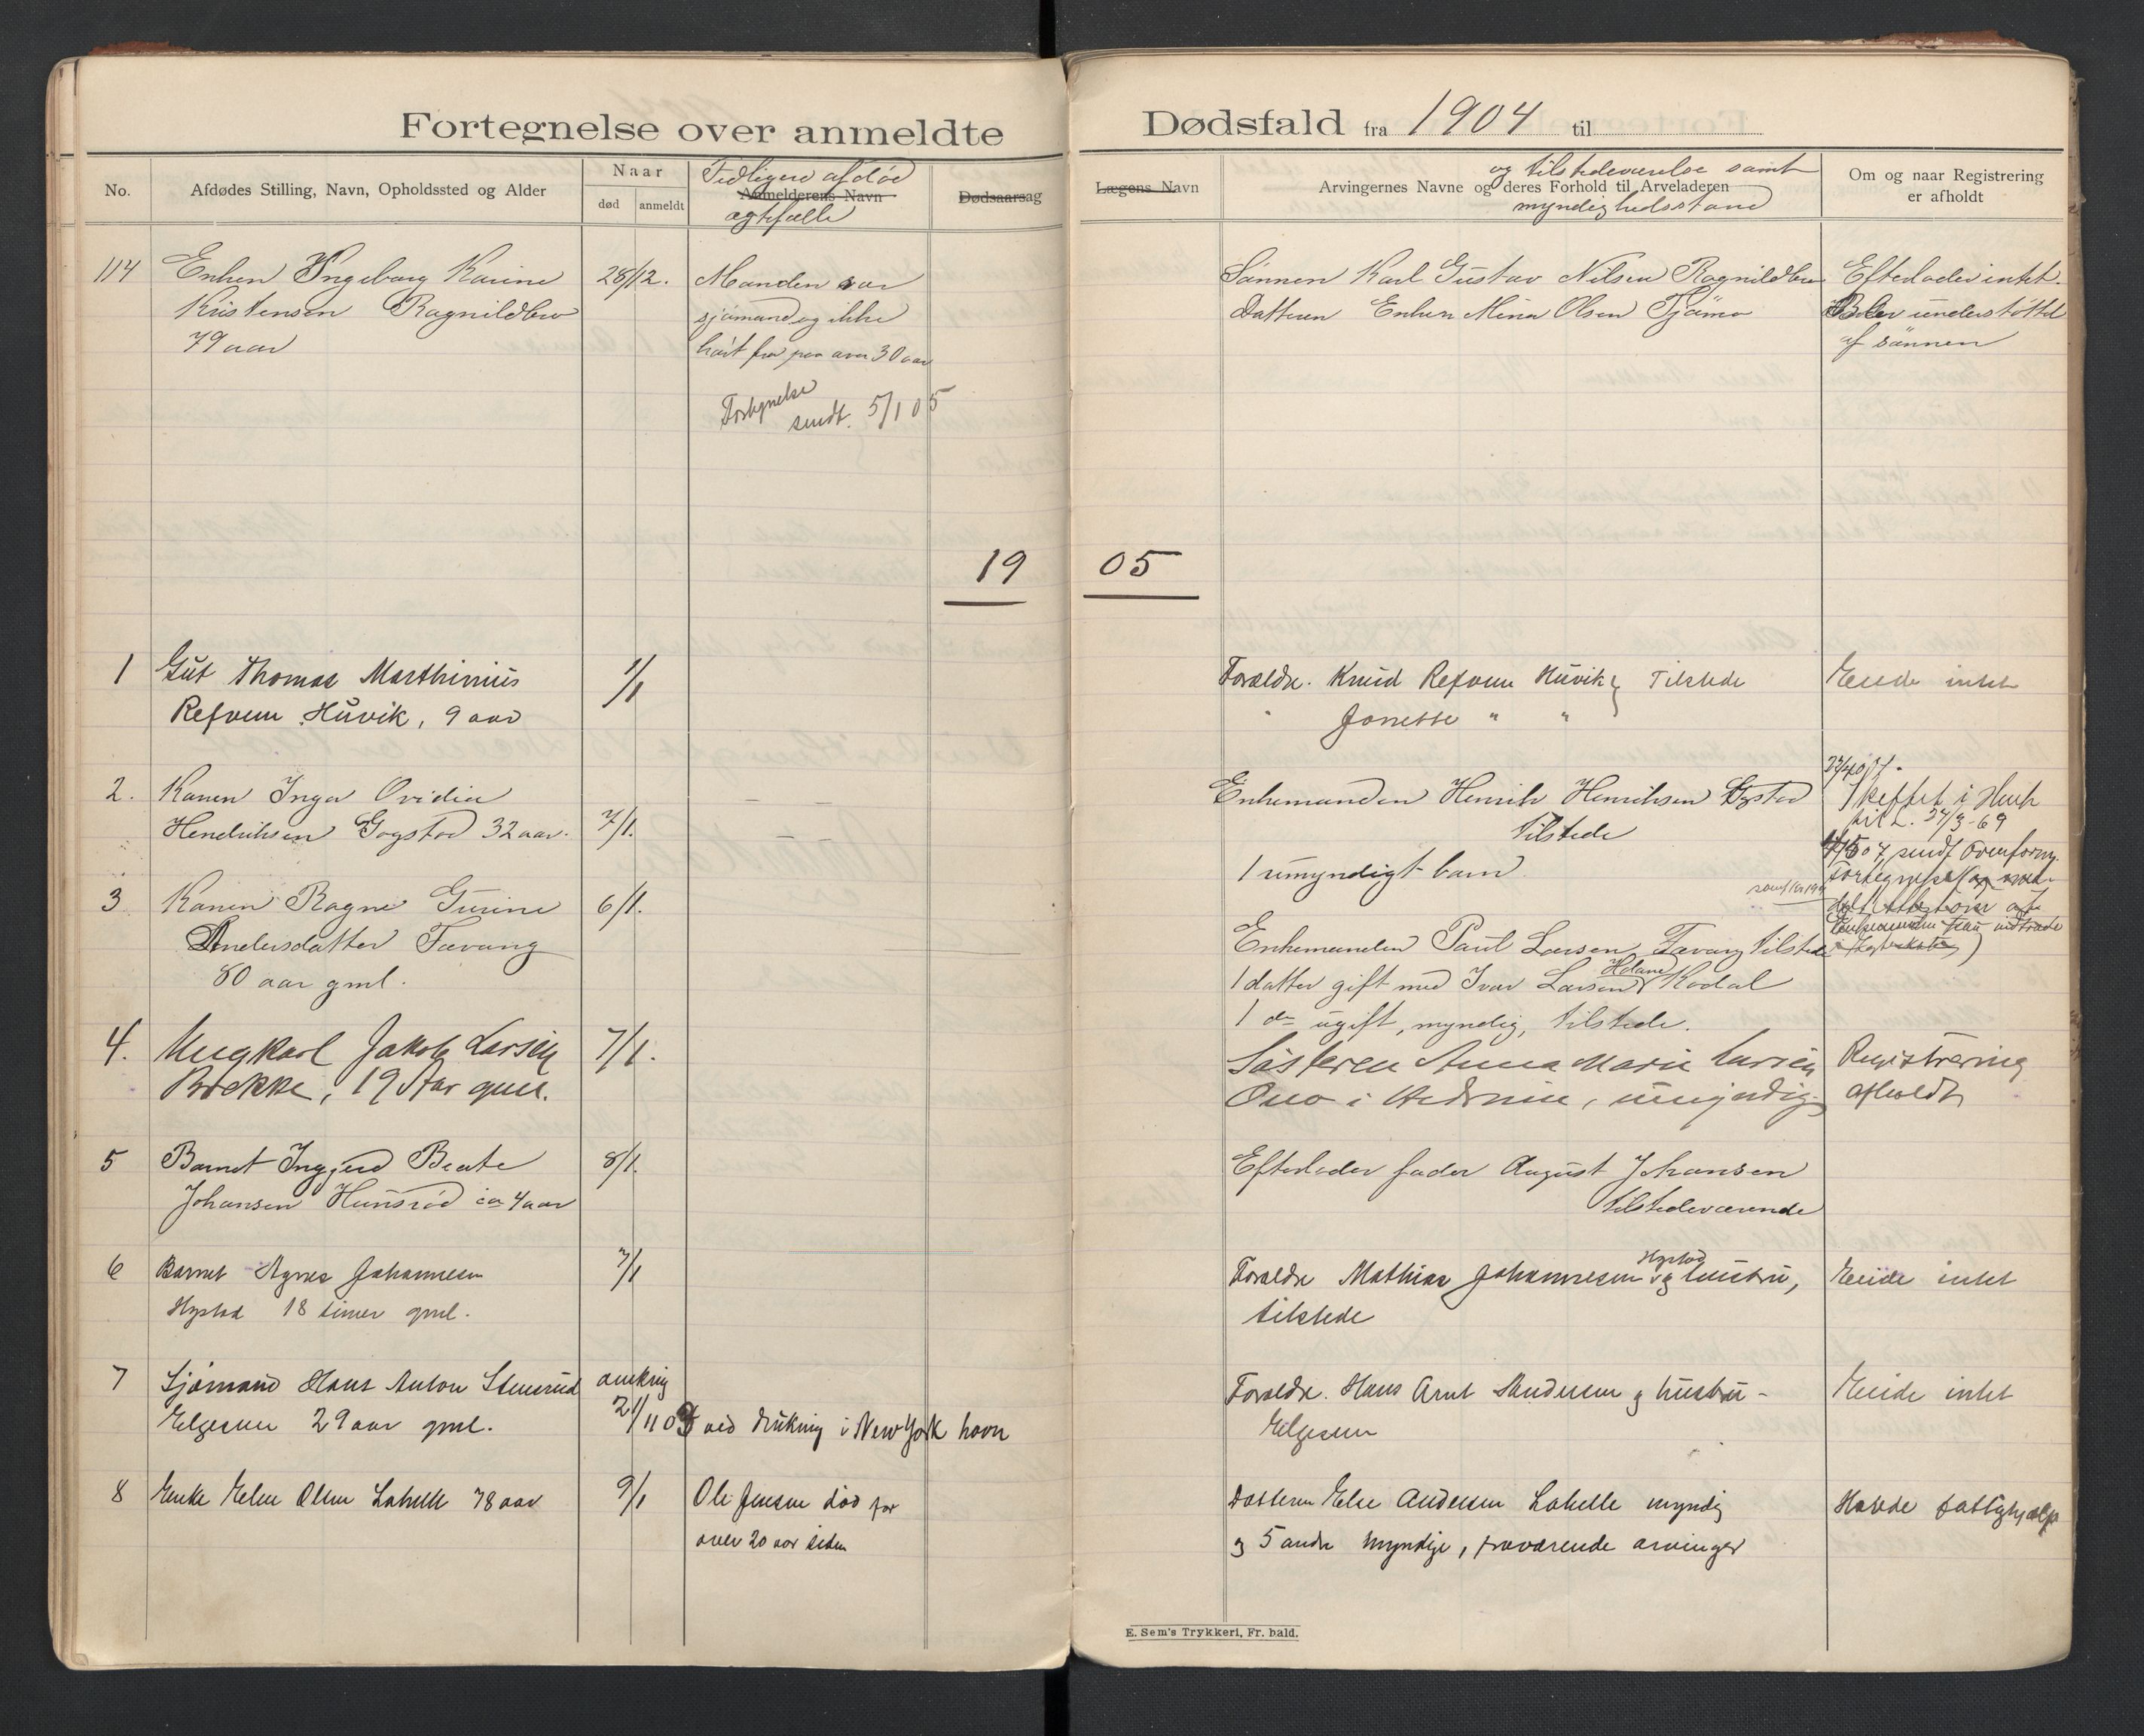 Fortegnelse over anmeldte Dødsfald fra 1904 til
No.
Afdødes Stilling, Navn, Opholdssted og Alder
Naar
død
anmeldt
Tidligere afdøde
Anmelderens Navn
ægtefælle
Dødsaarsag
Lægens Navn
og tilstedeværelse samt
Arvingernes Navne og deres Forhold til Arveladeren
myndighedsstand
Om og naar Registrering
er afholdt
114 Enken Ingeborg Karine 28/12. Manden var Sønnen Karl Gustav Nilsen Ragnildbro Efterlader intet.
Kristensen Ragnildbro sjømand og ikke Datteren Enken Mina Olsen Tjømø Blev understøttet
79 aar hørt fra paa over 30 aar af sønnen
Fortegnelse
sendt. 5/1 05
19 05
1 Gut Thomas Marthinius 1/1 Forældre. Knud Refvem Huvik Tilstede Eiede intet
Refvem Huvik, 9 aar " Jonette " "
2. Konen Inga Ovidia 7/1. Enkemanden Henrik Henriksen Gogstad
Hendriksen Gogstad 32 aar. tilstede
1 umyndigt barn
Skiftet i
27/3-69
sendt Overform.
Fortegnelse
3 Konen Ragne Gurine 6/1. Enkemanden Paul Larsen Favang tilstede
Andersdatter Favang 1 datter gift med Ivar Larsen Kodal
80 aar gml. 1 do ugift, myndig, tilstede.
4. Ungkarl Jakob Larsen 7/1. Søsteren Anna Marie Larsen Registrering
Brekke, 19 Aar gml. i Hedrum, umyndig afholdt
5 Barnet Inggerd Beate 8/1. Efterlader fader August Johansen
Johansen Hunsrød ca 4 aar tilstedeværende
6 Barnet Agnes Johannesen 7/1 Forældre Mathias Johannesen Hystad og hustru, Eiede intet
Hystad 18 timer gml. tilstede
7 Sjømand Hans Anton Stenerud omkring Forældre. Hans Arnt Andersen og hustru - Eiede intet
Elgesem 29 aar gml. 21/11 03 ved drukning i New York havn Elgesem
8 Enke Elen Olsen Lahelle 78 aar 9/1 Ole Jensen død for Datteren Else Andersen Lahelle myndig Havde fattighjælp
over 20 aar siden og 5 andre myndige, fraværende arvinger
E. Sem's Trykkeri, Fr. hald.